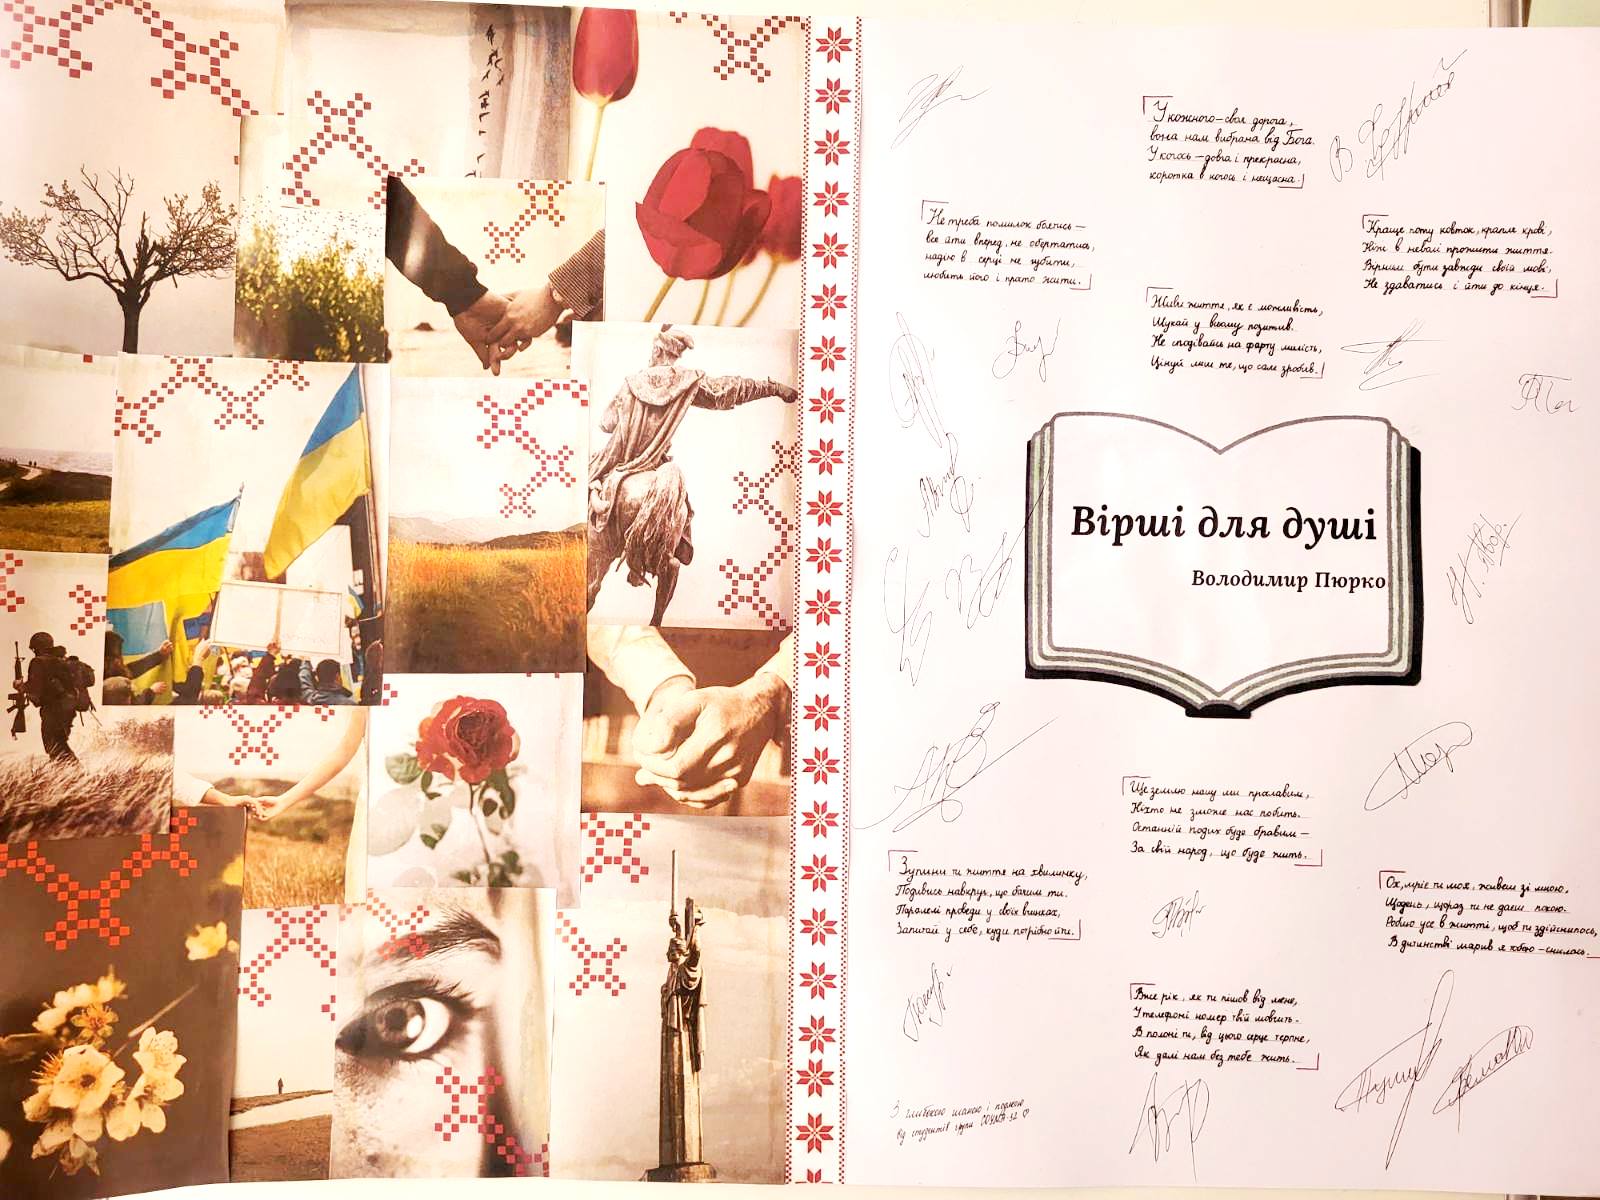 У кожного – своя дорога,
вона нам вибрана від Бога.
У когось – довга і прекрасна,
коротка в когось і нещасна.
Не треба помилок боятись –
все йти вперед, не обертатись,
надію в серці не губити,
любить його і прато жити.
Краще поту ковток, крапля крові,
Ніж в неволі прожити життя.
Вірним бути завжди своїй мові,
Не здаватись і йти до кінця.
Живи життя, як є можливість,
Шукай у всьому позитив.
Не сподівайсь на фарту милість,
Цінуй лиш те, що сам зробив.
Вірші для душі
Володимир Пюрко
Ще землю нашу ми прославим,
Ніхто не зможе нас побить.
Останній подих буде бравим –
За свій народ, що буде жить.
Зупини ти життя на хвилинку,
Подивись навкруг, що бачиш ти.
Паралелі проведи у своїх вчинках,
Запитай у себе, куди потрібно йти.
Ох, мріє ти моя, живеш зі мною,
Щодень, щораз ти не даєш покою.
Роблю усе в житті, щоб ти здійснилось,
В дитинстві марив я тобою – снилась.
Вже рік, як ти пішов від мене,
У телефоні номер твій мовчить.
В полоні ти, від цього серце терпне,
Як далі нам без тебе жить.
З глибокою шаною і подякою
від студентів групи